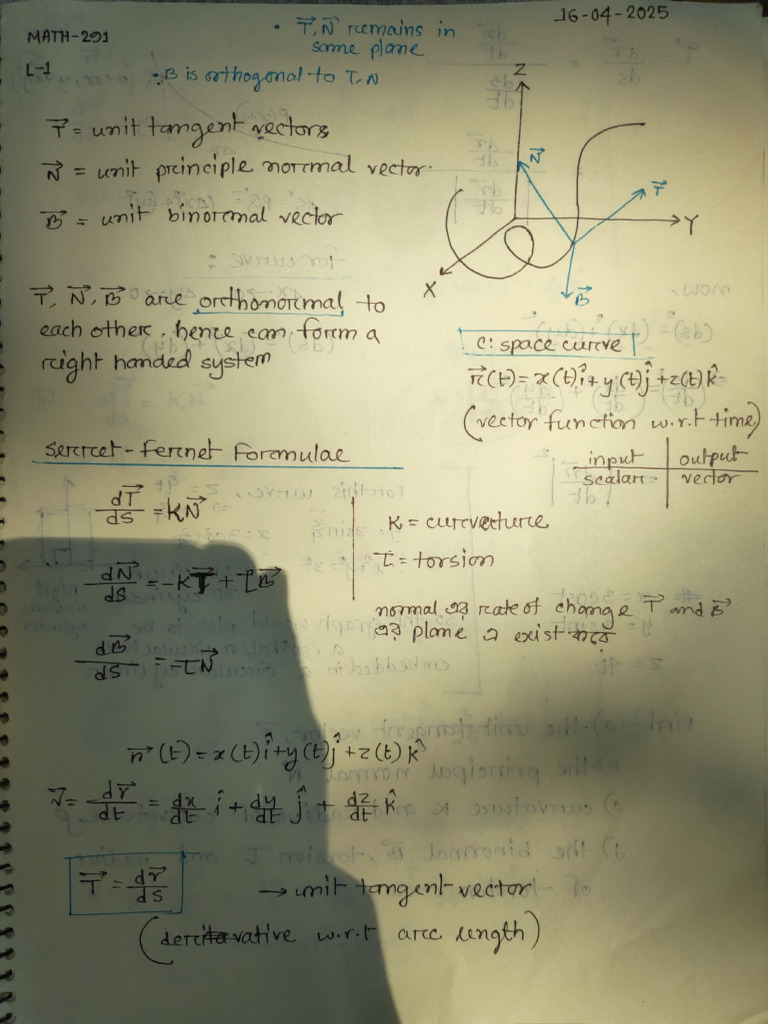 16-04-2025
MATH-291
• T⃗, N⃗ remains in
same plane
L-1
• B is orthogonal to T, N
T⃗ = unit tangent vectors
N⃗ = unit principle normal vector.
B⃗ = unit binormal vector
Z
N⃗
T⃗
Y
X
B⃗
T⃗, N⃗, B⃗ are orthonormal to
each other, hence can form a
right handed system
C: space curve
r⃗(t) = x(t)î + y(t)ĵ + z(t)k̂
(vector function w.r.t time)
input | output
scalar | vector
Serret-Fernet Formulae
dT⃗/ds = KN⃗
K = curvature
τ = torsion
dN⃗/ds = -KT⃗ + τB⃗
normal এর rate of change T⃗ and B⃗
এর plane এ exist করে
dB⃗/ds = -τN⃗
r⃗(t) = x(t)î + y(t)ĵ + z(t)k̂
v⃗ = dr⃗/dt = dx/dt î + dy/dt ĵ + dz/dt k̂
T⃗ = dr⃗/ds → unit tangent vector
(derivative w.r.t arc length)